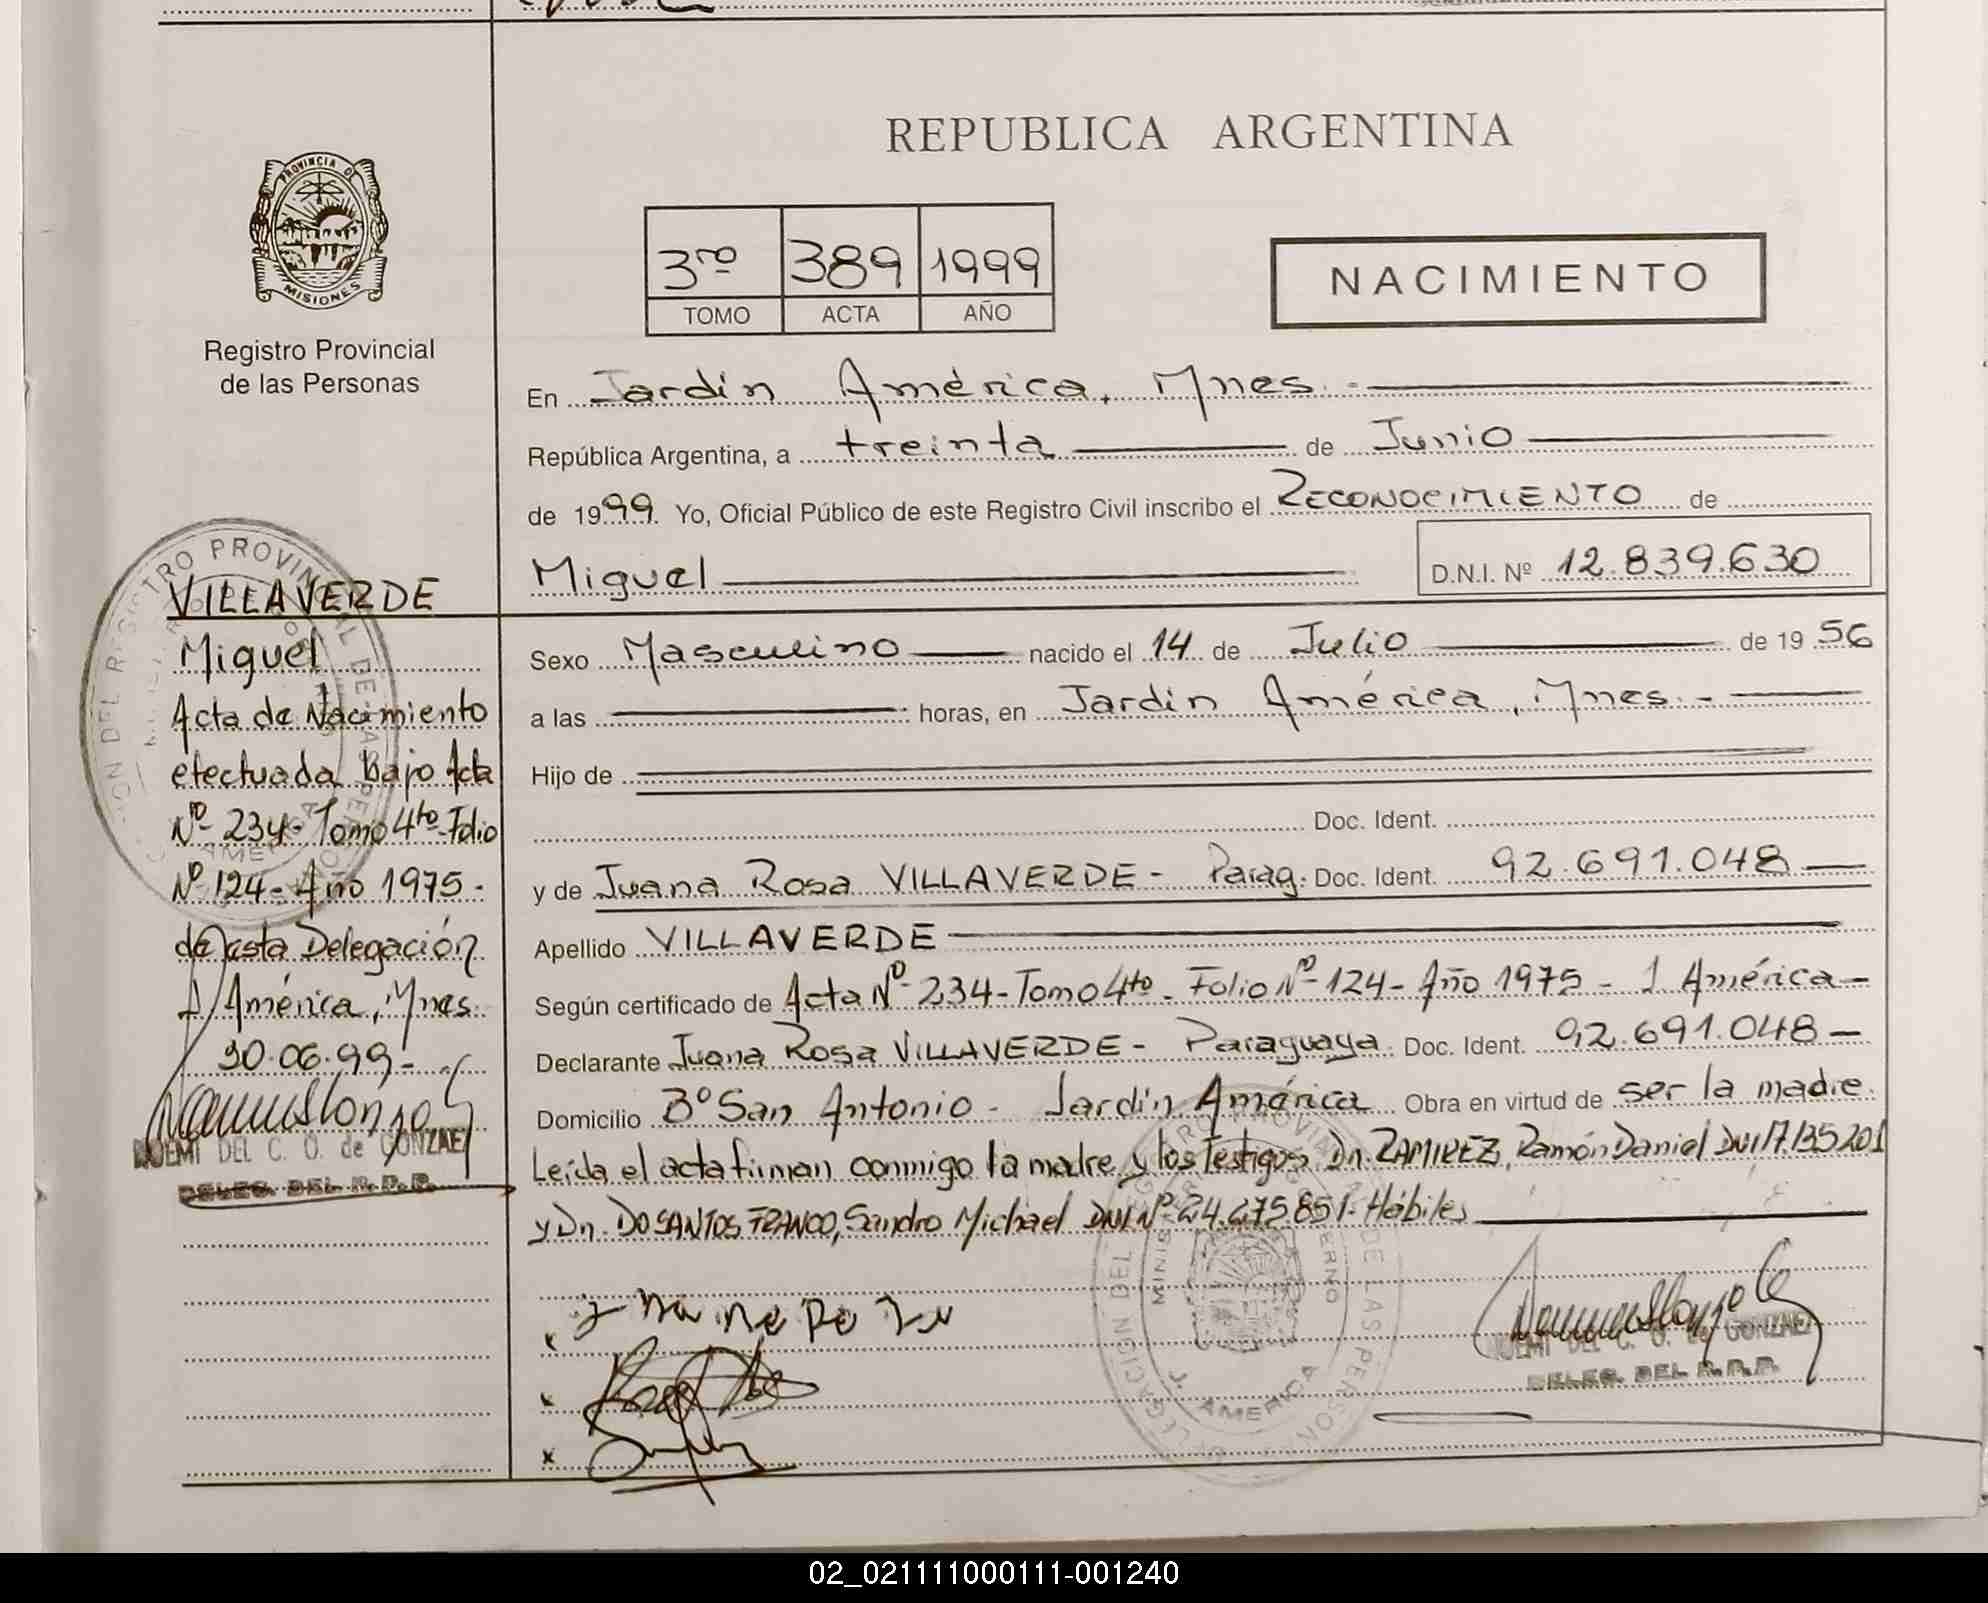 REPUBLICA ARGENTINA
PROVINCIA DE
MISIONES
Registro Provincial
de las Personas
3ro 389 1999
TOMO ACTA AÑO
NACIMIENTO
En Jardín América, Mnes.-
República Argentina, a treinta de Junio
de 1999 Yo, Oficial Público de este Registro Civil inscribo el RECONOCIMIENTO de
Miguel D.N.I. Nº 12.839.630
Sexo Masculino nacido el 14 de Julio de 1956
a las horas, en Jardín América, Mnes.-
Hijo de
Doc. Ident.
y de Juana Rosa VILLAVERDE - Parag. Doc. Ident. 92.691.048
Apellido VILLAVERDE
Según certificado de Acta Nº 234 - Tomo 4to - Folio Nº 124 - Año 1975 - J. América -
Declarante Juana Rosa VILLAVERDE - Paraguaya. Doc. Ident. 92.691.048 -
Domicilio Bº San Antonio - Jardín América Obra en virtud de ser la madre.
Leída el acta firman conmigo la madre y los Testigos Dn. RAMIREZ, Ramón Daniel DNI 17.135.201
y Dn. DOSANTOS FRANCO, Sandro Michael DNI Nº 24.275.851- Hábiles
VILLAVERDE
Miguel
Acta de Nacimiento
efectuada bajo Acta
Nº 234 - Tomo 4to - Folio
Nº 124 - Año 1975 -
de esta Delegación
J. América, Mnes.
30.06.99 -
NOEMI DEL C. O. de GONZALEZ
DELEG. DEL R.P.P.
NOEMI DEL C. O. de GONZALEZ
DELEG. DEL R.P.P.
02_021111000111-001240